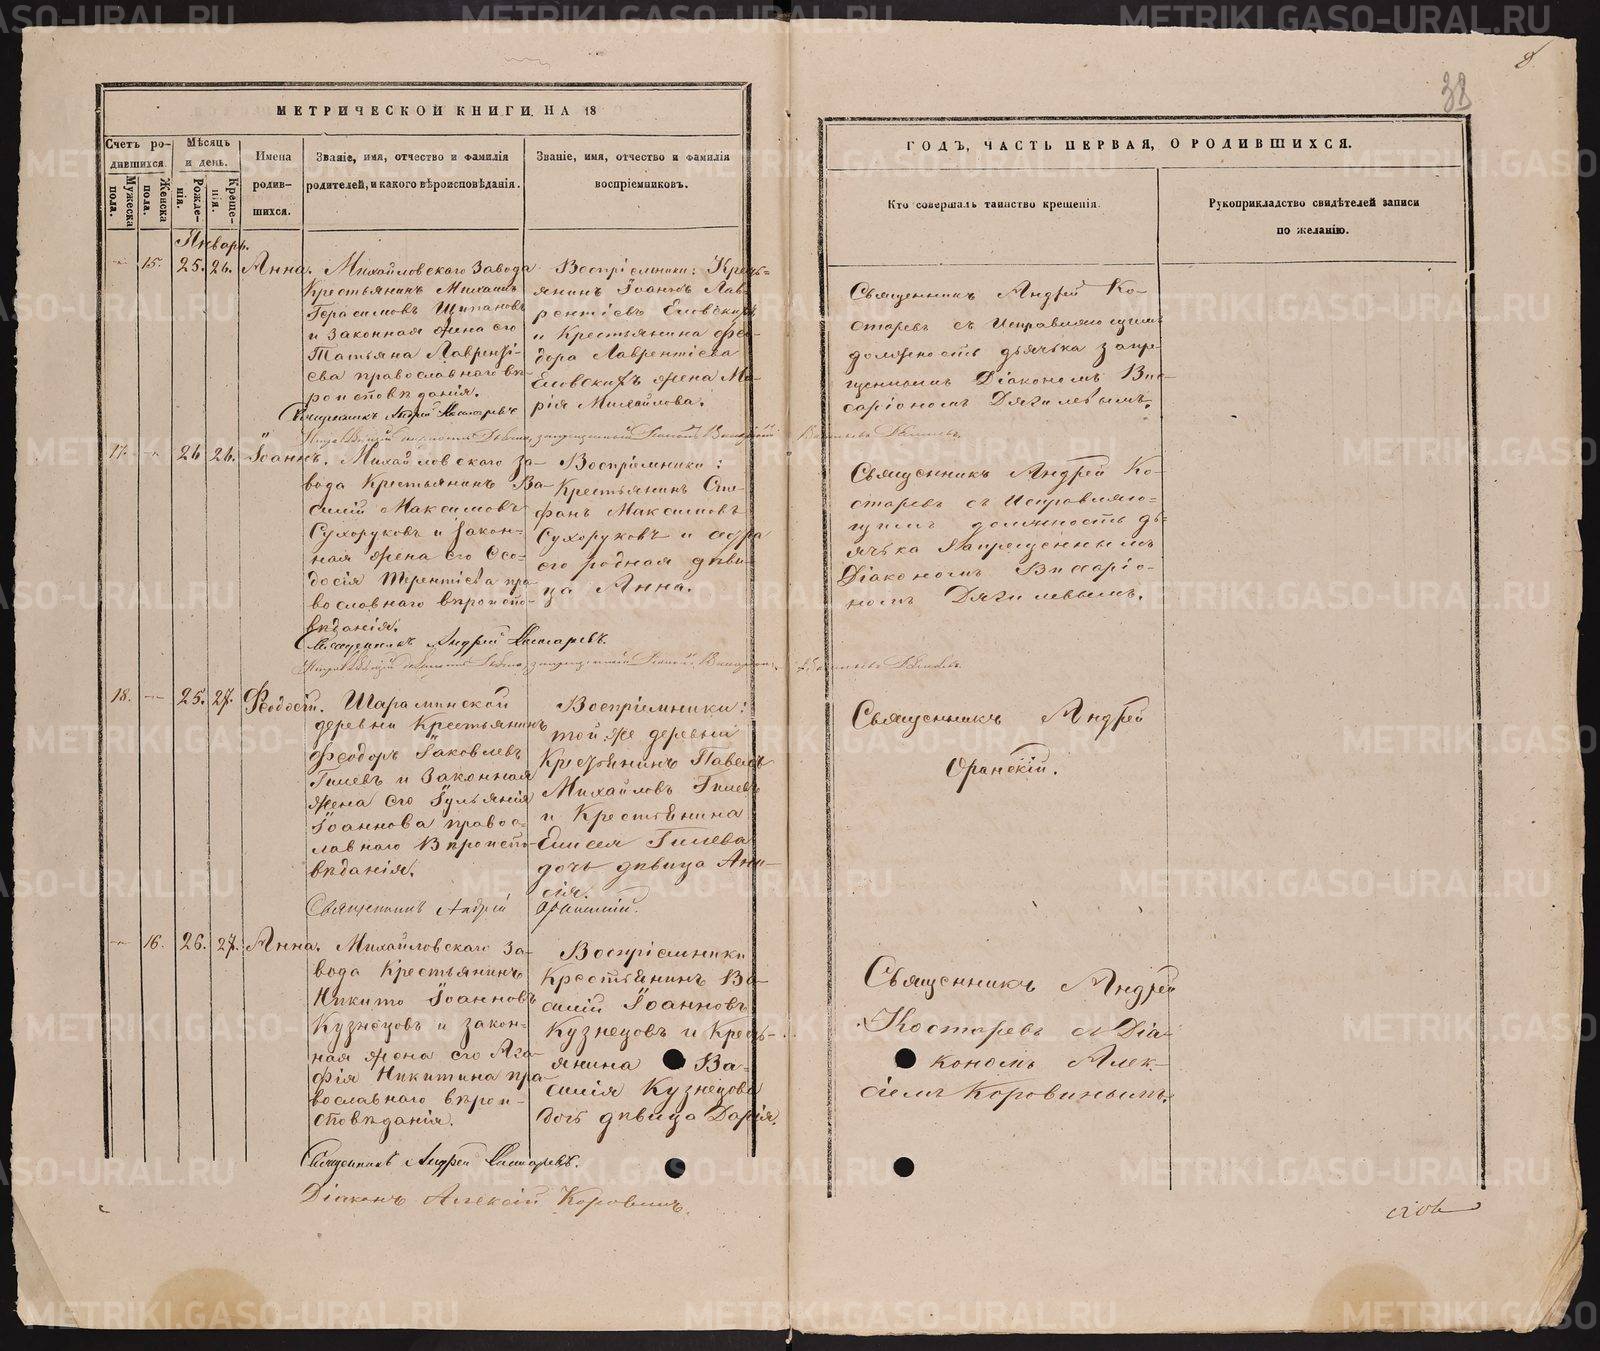 МЕТРИЧЕСКОЙ КНИГИ НА 18
Счетъ ро-
дившихся.
Мужеска пола.
Женска пола.
Мѣсяцъ
и день.
Рожде-
нія.
Креще-
нія.
Имена
родив-
шихся.
Званіе, имя, отчество и фамилія
родителей, и какого вѣроисповѣданія.
Званіе, имя, отчество и фамилія
воспріемниковъ.
Январь.
15. 25. 26. Анна.
Михайловскаго Завода
Крестьянинъ Михаилъ
Герасимовъ
и Законная жена его
Татьяна Лаврентi-
ева православнаго вѣ-
роисповѣданія.
Воспріемники: Кресть-
янинъ Іоаннъ Лав-
рентіевъ Еловскихъ
и Крестьянина Фео-
дора Лаврентіева
Еловскихъ жена Ма-
рія Михайлова.
Священникъ Андрей Костаревъ
17. 26 26. Іоаннъ.
Михайловскаго за-
вода Крестьянинъ Ва-
силій Максимовъ
Сухоруковъ и закон-
ная жена его Ѳео-
досія Терентіева пра-
вославнаго вѣроиспо-
вѣданія.
Воспріемники:
Крестьянинъ Сте-
фанъ Максимовъ
Сухоруковъ и сестра
его родная дѣви-
ца Анна.
Священникъ Андрей Костаревъ.
18. 25. 27. Феодосій.
Шараминской
деревни Крестьянинъ
Феодоръ Іаковлевъ
Гилевъ и Законная
жена его Іульянія
Іоаннова правос-
лавнаго Вѣроиспо-
вѣданія.
Воспріемники:
той-же деревни
Крестьянинъ Павелъ
Михайловъ Гилевъ
и Крестьянина
Елисея Гилева
дочь дѣвица Ани-
сія.
Священникъ Андрей Оранскій.
16. 26. 27. Анна.
Михайловскаго за-
вода Крестьянинъ
Никита Іоанновъ
Кузнецовъ и закон-
ная жена его Ага-
фія Никитина пра-
вославнаго вѣрои-
споведанія.
Воспріемники
Крестьянинъ Ва-
силій Іоанновъ
Кузнецовъ и Кресть-
янина Ва-
силія Кузнецова
дочь дѣвица Дарія.
Священникъ Андрей Костаревъ.
Діаконъ Алексій Коровинъ.
38
ГОДЪ, ЧАСТЬ ПЕРВАЯ, О РОДИВШИХСЯ.
Кто совершалъ таинство крещенія.
Рукоприкладство свидѣтелей записи
по желанію.
Священникъ Андрей Ко-
старевъ съ Исправляющимъ
должность дьячка запре-
щеннымъ Діакономъ Вис-
саріономъ Дягилевымъ.
Священникъ Андрей Ко-
старевъ съ Исправляю-
щимъ должность дь-
ячка Запрещеннымъ
Діакономъ Виссаріо-
номъ Дягилевымъ.
Священникъ Андрей
Оранскій.
Священникъ Андрей
Костаревъ с Діа-
кономъ Алек-
сіемъ Коровинымъ.
METRIKI.GASO-URAL.RU